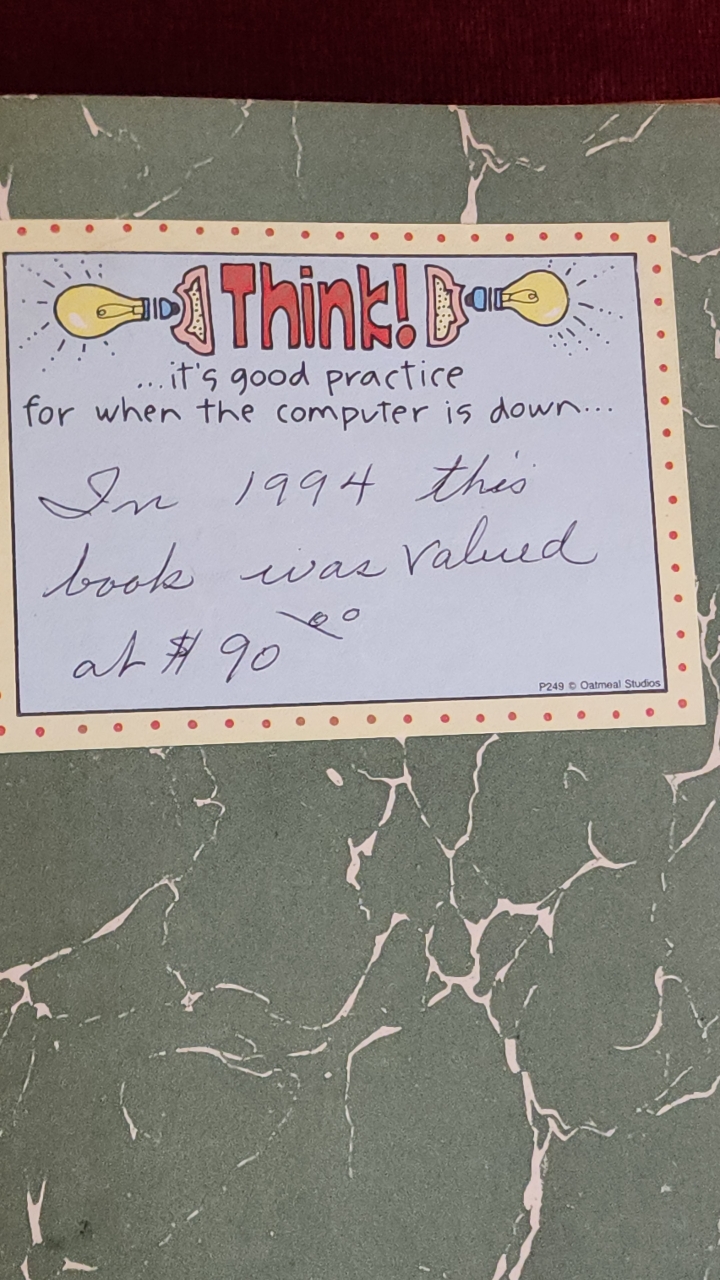 Think!
...it's good practice
for when the computer is down...
In 1994 this
book was valued
at $90 00
P249 © Oatmeal Studios